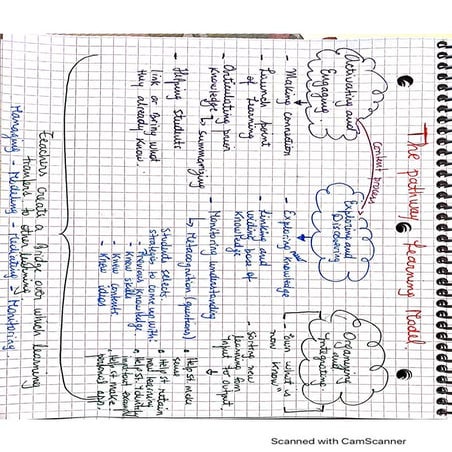 The pathway Learning Model.
Activating and
Engaging.
- Making connection
- Launch point
of Learning
- Articulating
knowledge & summarizing
- Helping students
link or bring what
they already know.
Exploring and
Discovering
- Exploring knowledge
- Linking and
wide base of
knowledge
- Monitoring understanding
↳ Metacognition (questions)
Student selects
strategies to come up with:
- Previous knowledge
- Knew skills
- Knew contents
- Knew ideas
Organizing
and
Integrating
- "Own what is
now know"
- Sorting new
learning from
input to output.
• Help st make
sense
• Help st retain
new learning
• Help st identify
important
• Help st make
Teachers create a Bridge over which learning
transfers to other learning
Managing - Modeling - Facilitating - Monitoring
Scanned with CamScanner